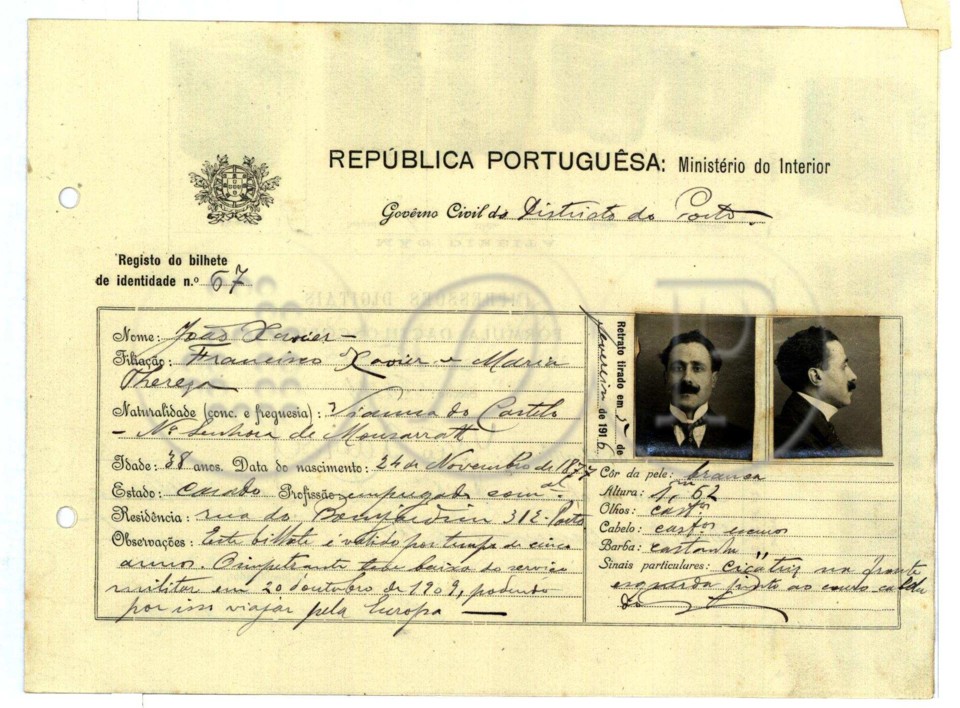 REPÚBLICA PORTUGUÊSA: Ministério do Interior
Govêrno Civil do Districto do Porto
Registo do bilhete
de identidade n.º 67
Nome: João Xavier
Filiação: Francisco Xavier e Maria
Thereza
Naturalidade (conc. e freguesia): Vianna do Castelo
- Nª Senhora de Monsarrath
Idade: 38 anos. Data do nascimento: 24 de Novembro de 1877
Estado: casado Profissão: empregado com.al
Residência: rua do Bomjardim 312-Porto
Observações: Este bilhete é valido por tempo de cinco
annos. O impetrante teve baixa do serviço
militar em 20 d'outubro de 1909, podendo
por isso viajar pela Europa
Retrato tirado em de
fevereiro de 1916
Côr da pele: branca
Altura: 1,m62
Olhos: cast.os
Cabelo: cast.os escuros
Barba: castanha
Sinais particulares: cicatriz na fronte
esquerda junto ao couro cabellu
do